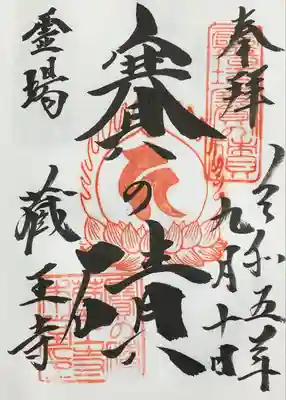 奉拝
令和五年九月十日
賽の磧
霊場
蔵王寺